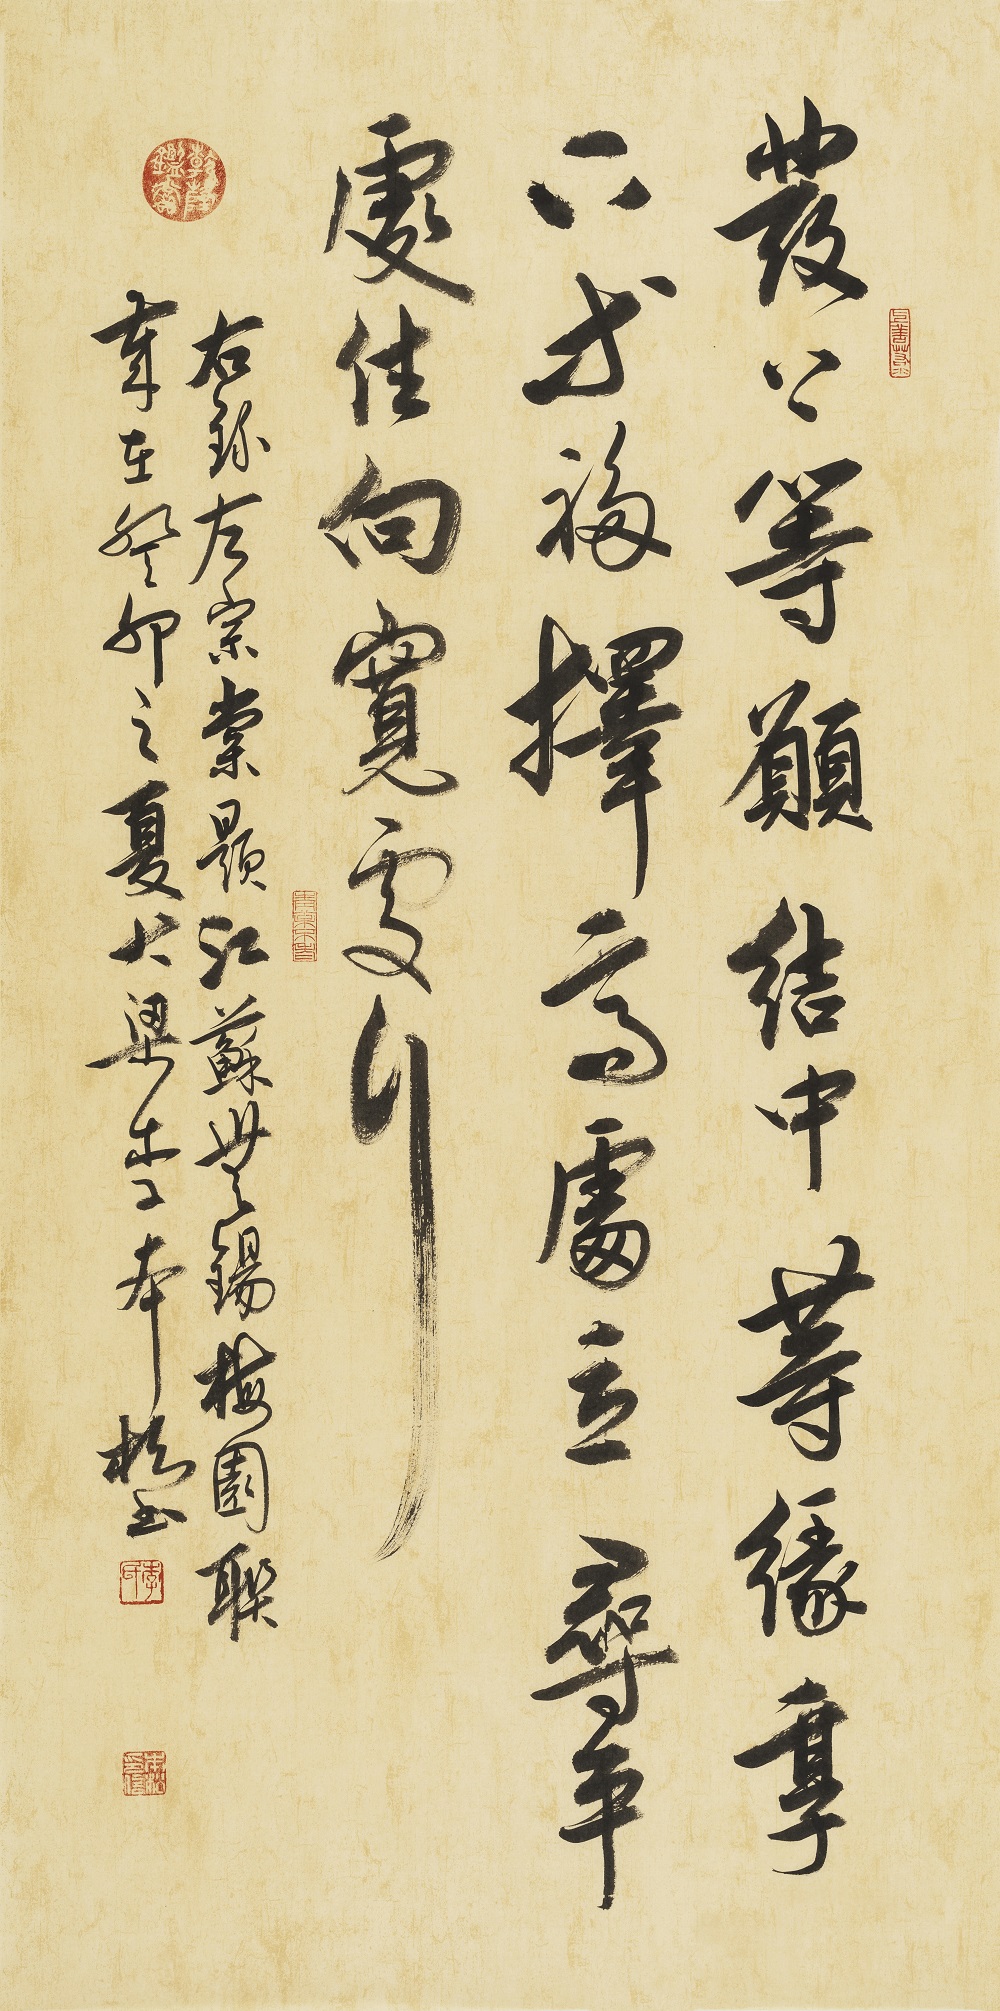 發上等願結中等緣享
下等福擇高處立尋平
處住向寬處行
右錄左宗棠題江蘇無錫梅園聯
歲在癸卯之夏大梁李奉松書